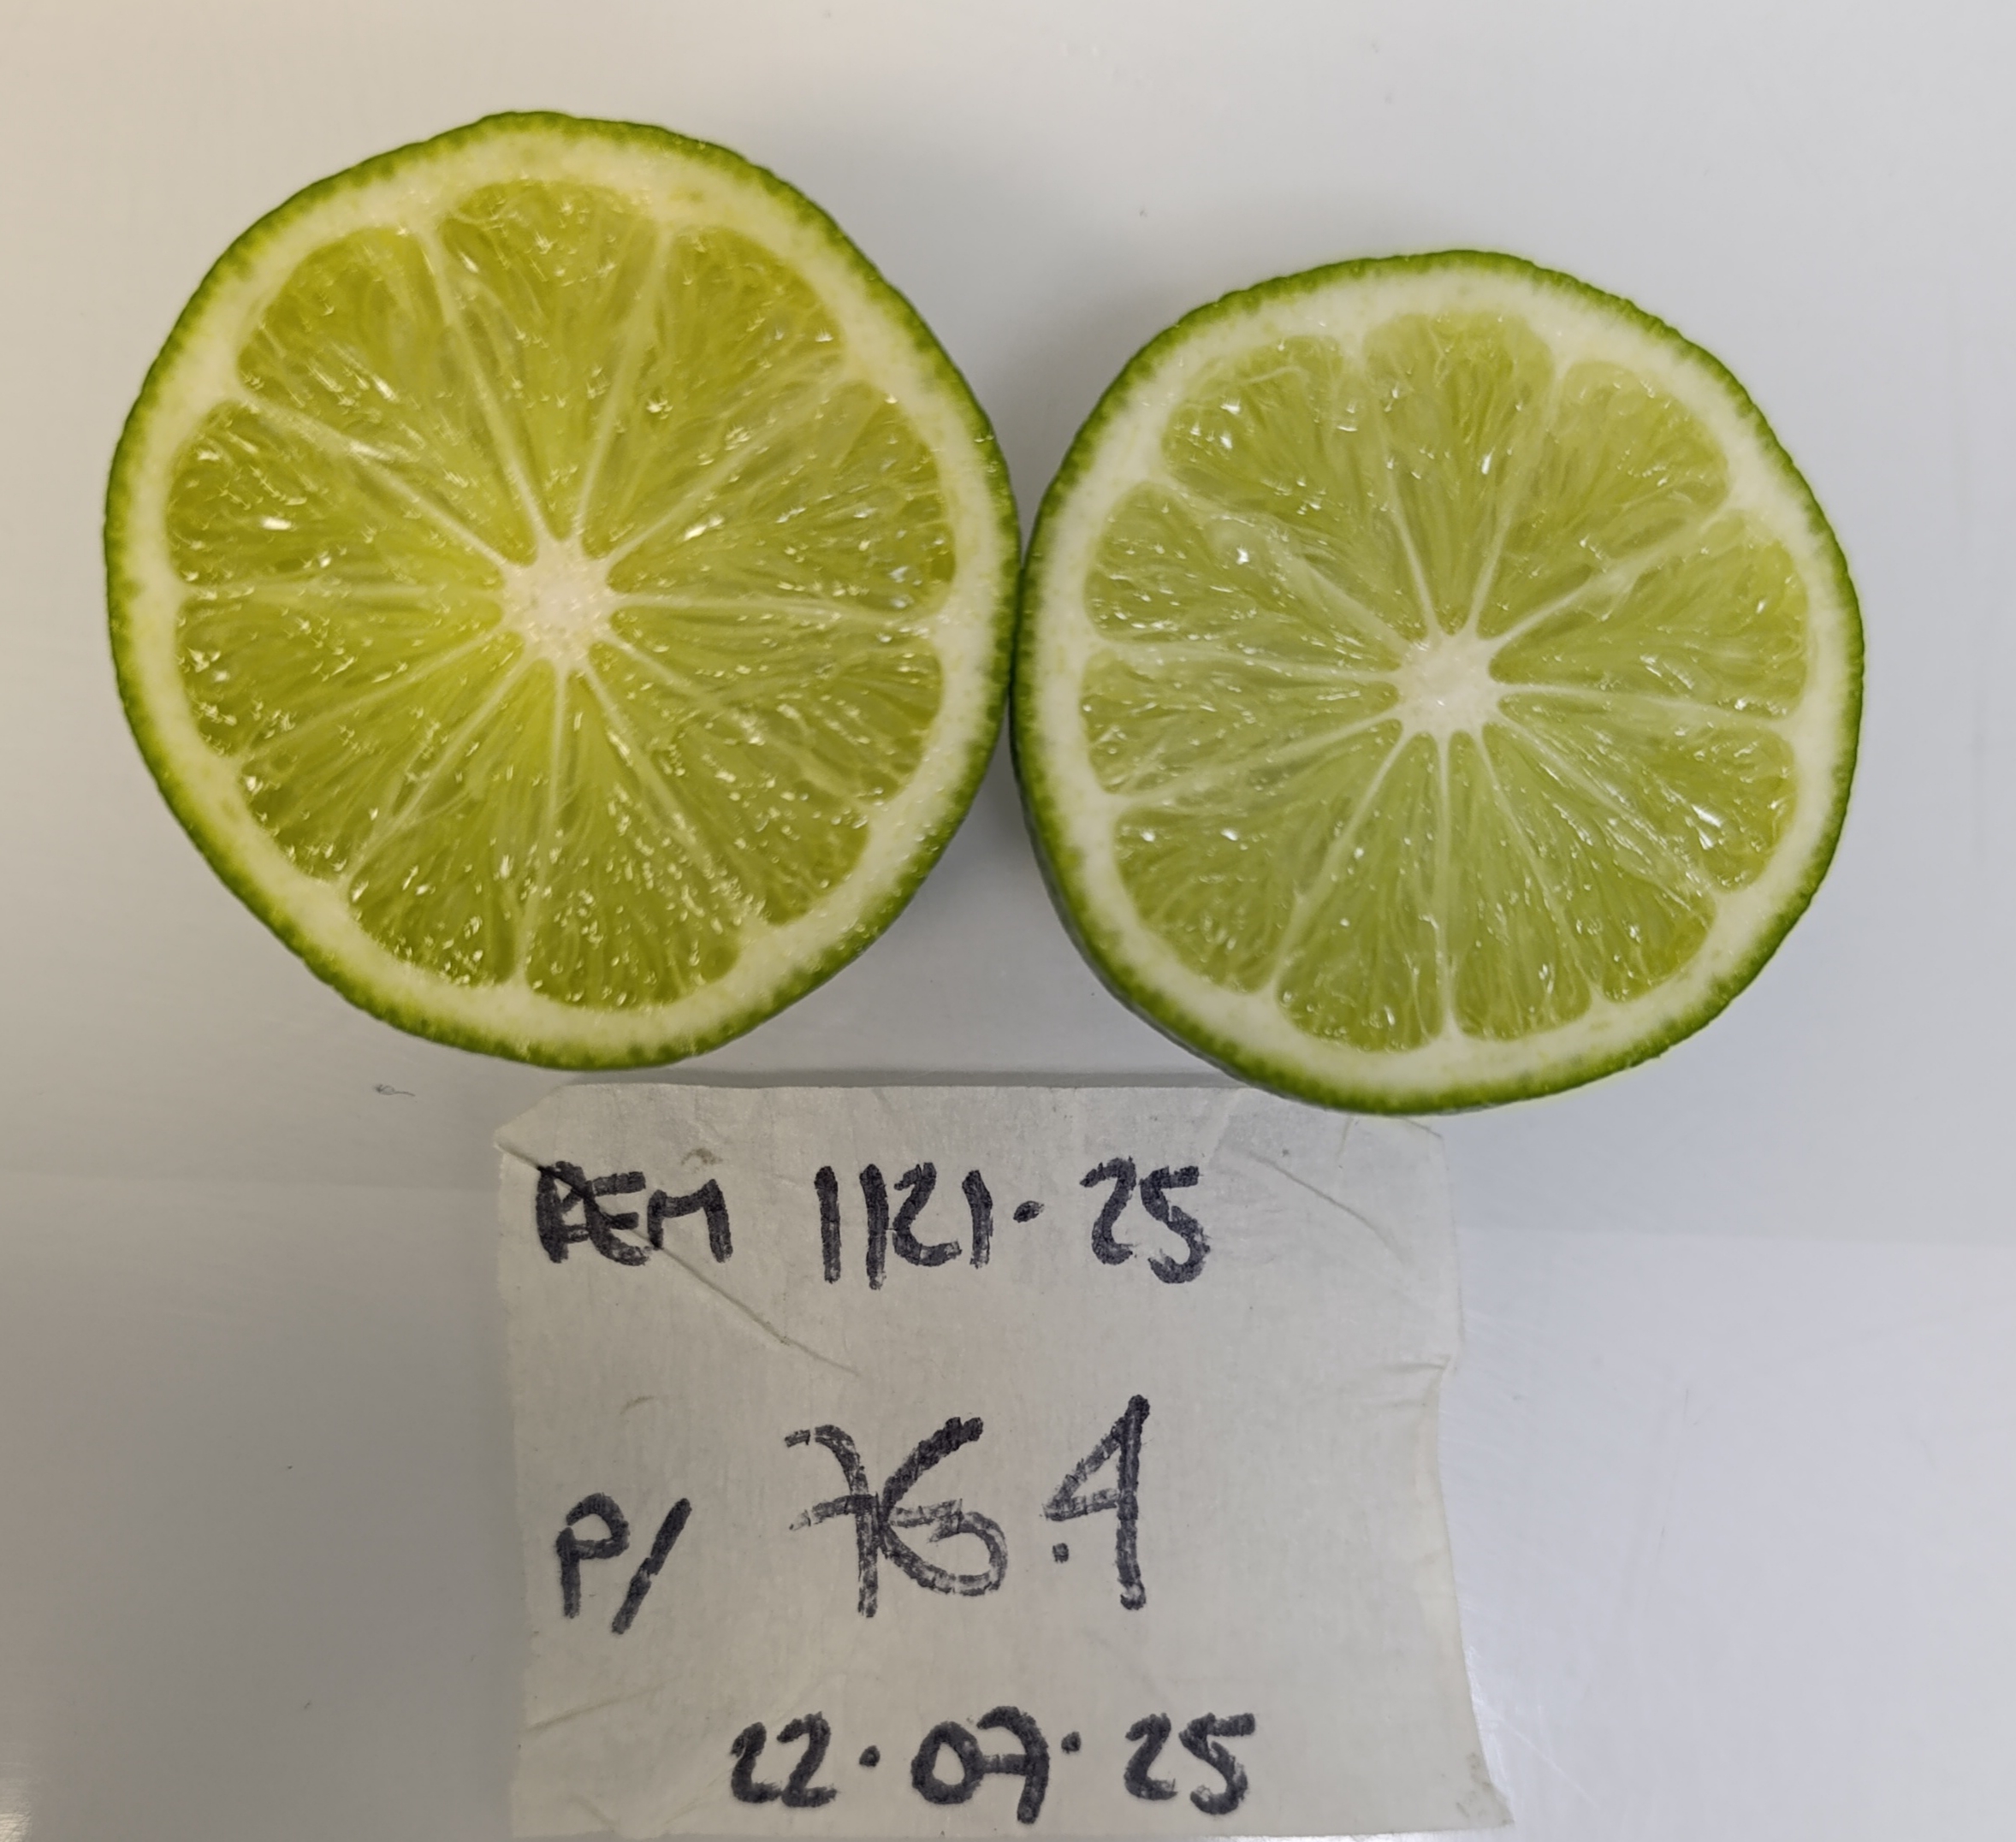 REM 1121. 25
P/ 76.4
22.07.25